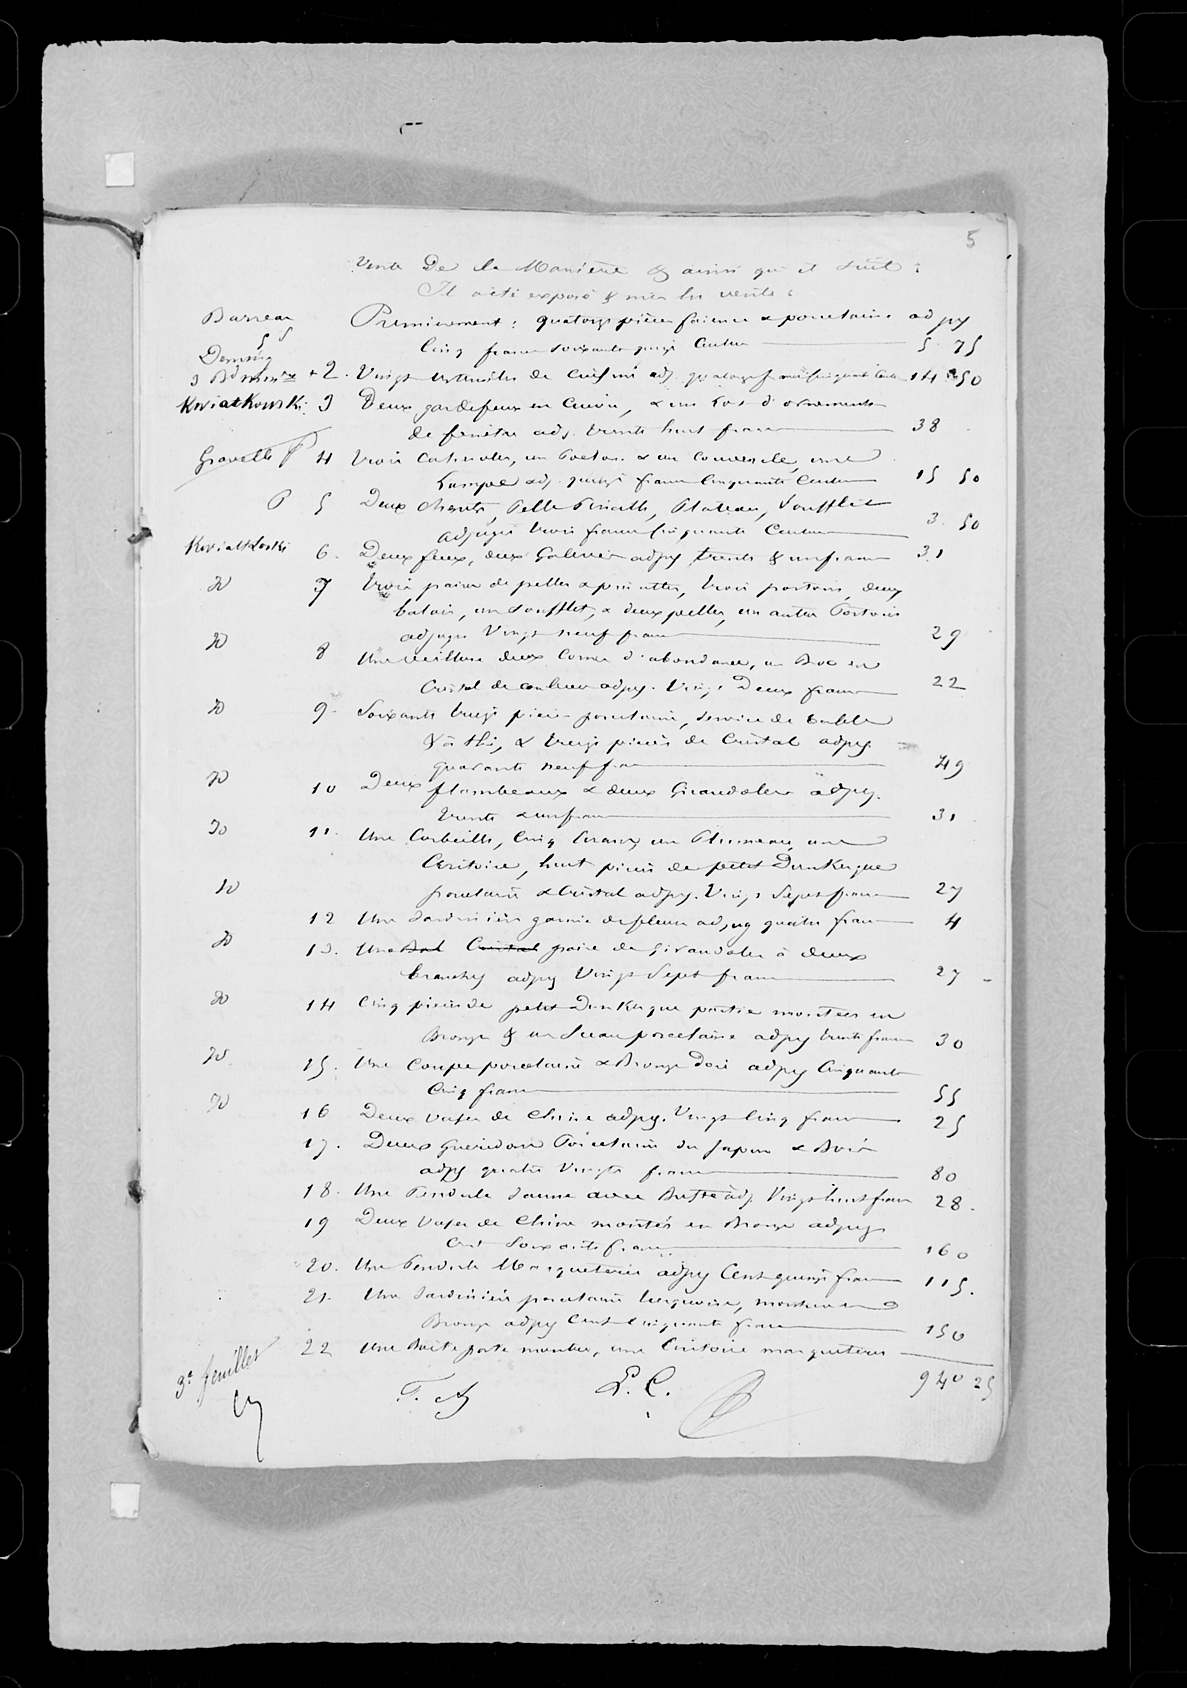 5
Vente De la Manière & ainsi qu'il suit :
Il a été exposé & mis en vente :
Barreau Premièrement : quatorze pièces faience & porcelaine adjy
Cinq francs soixante quinze Centimes 5 75
+ 2. Vingt ustensiles de Cuisine adj. quatorze francs cinquante Cent 14 50
Kwiatkowski 3 Deux gardefeux en Cuivre, & un Lot d'ornements
de fenêtre adj. trente huit francs 38
Gravelle P 4 Trois Casseroles, un & un Couvercle, une
Lampe adj. quinze francs Cinquante Centimes 15 50
P 5 Deux Chenets, Pelle Pincette, Plateau, Soufflet
adjugés trois francs Cinquante Centimes 3. 50
Kwiatkoski 6. Deux feux, deux Galeries adjy trente & un francs 31
D 7 Trois paires de pelles & pincettes, trois , deux
balais, un Soufflet, & deux pelles, un autre
adjugés Vingt neuf francs 29
D 8 Une veilleuse deux Cornes d'abondance, un Broc en
Cristal de couleur adjy. Vingt Deux francs 22
D 9. Soixante treize pièces porcelaine, service de table
& à thé, & treize pièces de Cristal adjy.
quarante neuf francs 49
D 10 Deux flambeaux & deux Girandoles adjy.
trente & un francs 31
D 11. Une Corbeille, Cinq un Plumeau, une
Ecritoire, huit pièces de petit Dunkerque
D porcelaine & Cristal adjy. Vingt Sept francs 27
12 Une Jardinière garnie de fleurs adjug quatre francs 4
D 13. Une paire de Girandoles à deux
branches adjy Vingt Sept francs 27
D 14 Cinq pièces de petit Dunkerque partie montées en
Bronze & un Sceau porcelaine adjy trente francs 30
D 15. Une Coupe porcelaine & Bronze doré adjy Cinquante
Cinq francs 55
D 16 Deux Vases de Chine adjy. Vingt Cinq francs 25
17. Deux Guéridons Porcelaine du Japon & Bois
adjy quatre Vingts francs 80
18. Une Pendule Jaune avec Buffre adj. Vingt huit francs 28.
19 Deux Vases de Chine montés en Bronze adjug
Cent Soixante francs 160
20. Une Pendule Marqueterie adjy Cent quinze francs 115.
21. Une Jardinière porcelaine turquoise, monture en
Bronze adjy Cent Cinquante francs 150
22 Une Boite porte montre, une Ecritoire marqueterie
940 25
3e feuillet
L. C.